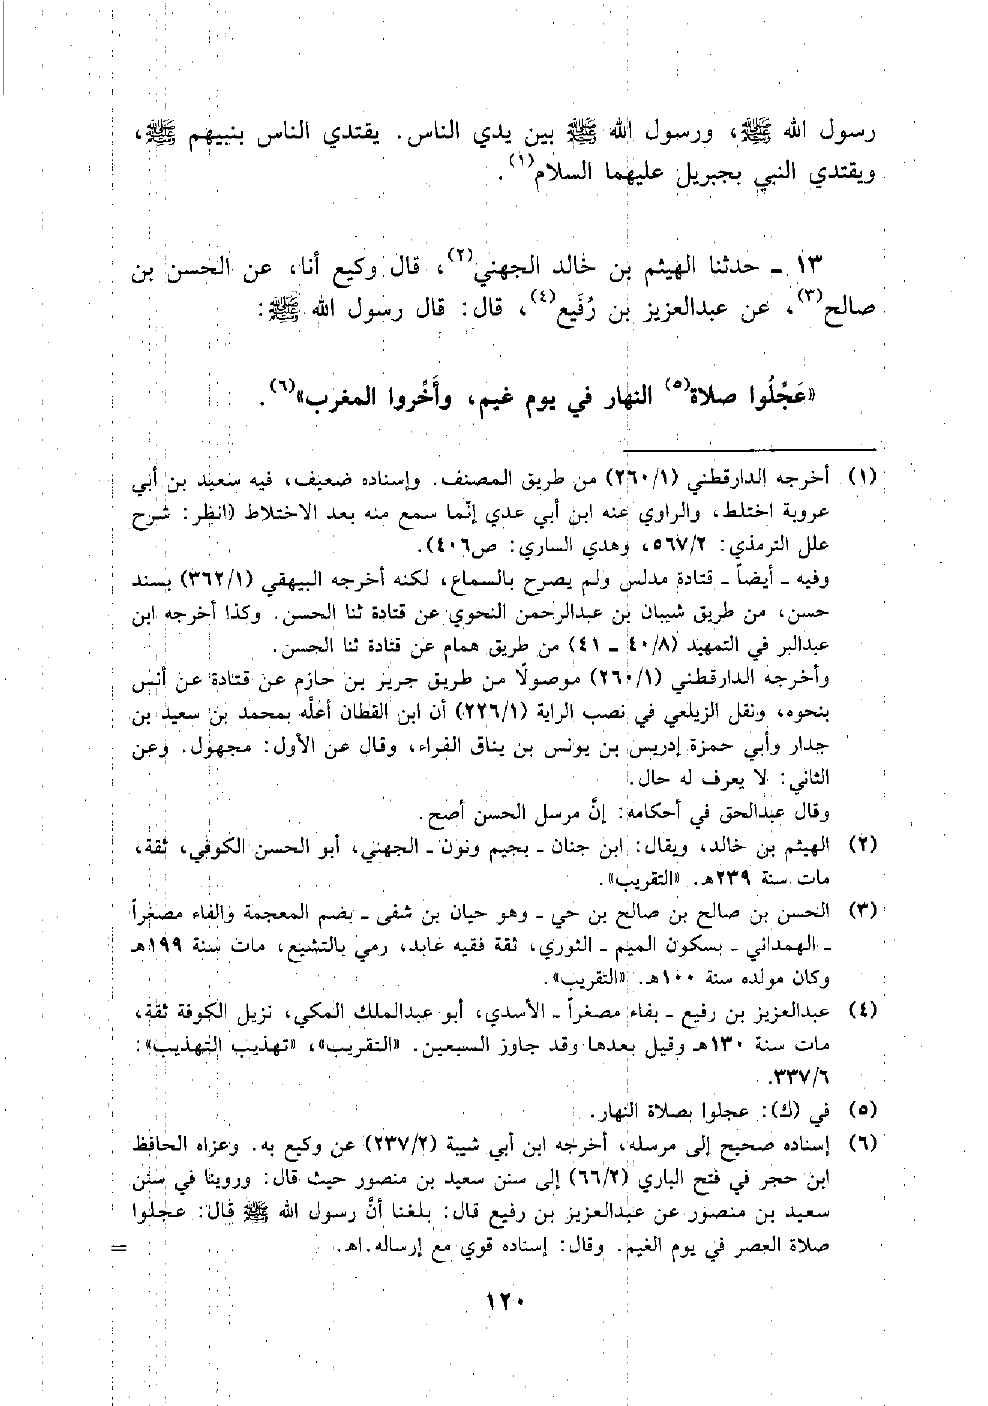 رسول الله ﷺ، ورسول الله ﷺ بين يدي الناس. يقتدي الناس بنبيهم ﷺ،
ويقتدي النبي بجبريل عليهما السلام(١).
١٣ ـ حدثنا الهيثم بن خالد الجهني(٢)، قال وكيع أنا، عن الحسن بن
صالح(٣)، عن عبدالعزيز بن رُفَيع(٤)، قال: قال رسول الله ﷺ:
«عَجِّلُوا صلاة(٥) النهار في يوم غيم، وأَخِّروا المغرب»(٦).
(١) أخرجه الدارقطني (٢٦٠/١) من طريق المصنف. وإسناده ضعيف، فيه سعيد بن أبي
عروبة اختلط، والراوي عنه ابن أبي عدي إنّما سمع منه بعد الاختلاط (انظر: شرح
علل الترمذي: ٥٦٧/٢، وهدي الساري: ص٤٠٦).
وفيه ـ أيضاً ـ قتادة مدلس ولم يصرح بالسماع، لكنه أخرجه البيهقي (٣٦٢/١) بسند
حسن، من طريق شيبان بن عبدالرحمن النحوي عن قتادة ثنا الحسن. وكذا أخرجه ابن
عبدالبر في التمهيد (٤٠/٨ ـ ٤١) من طريق همام عن قتادة ثنا الحسن.
وأخرجه الدارقطني (٢٦٠/١) موصولًا من طريق جرير بن حازم عن قتادة عن أنس
بنحوه، ونقل الزيلعي في نصب الراية (٢٢٦/١) أن ابن القطان أعلّه بمحمد بن سعيد بن
جدار وأبي حمزة إدريس بن يونس بن يناق الفراء، وقال عن الأول: مجهول. وعن
الثاني: لا يعرف له حال.
وقال عبدالحق في أحكامه: إنَّ مرسل الحسن أصح.
(٢) الهيثم بن خالد، ويقال: ابن جنان ـ بجيم ونون ـ الجهني، أبو الحسن الكوفي، ثقة،
مات سنة ٢٣٩هـ. «التقريب».
(٣) الحسن بن صالح بن صالح بن حي ـ وهو حيان بن شفى ـ بضم المعجمة والفاء مصغراً
ـ الهمداني ـ بسكون الميم ـ الثوري، ثقة فقيه عابد، رمي بالتشيع، مات سنة ١٩٩هـ
وكان مولده سنة ١٠٠هـ. «التقريب».
(٤) عبدالعزيز بن رفيع ـ بفاء مصغراً ـ الأسدي، أبو عبدالملك المكي، نزيل الكوفة ثقة،
مات سنة ١٣٠هـ وقيل بعدها وقد جاوز السبعين. «التقريب»، «تهذيب التهذيب»:
٣٣٧/٦.
(٥) في (ك): عجلوا بصلاة النهار.
(٦) إسناده صحيح إلى مرسله، أخرجه ابن أبي شيبة (٢٣٧/٢) عن وكيع به. وعزاه الحافظ
ابن حجر في فتح الباري (٦٦/٢) إلى سنن سعيد بن منصور حيث قال: وروينا في سنن
سعيد بن منصور عن عبدالعزيز بن رفيع قال: بلغنا أنَّ رسول الله ﷺ قال: عجلوا
صلاة العصر في يوم الغيم. وقال: إسناده قوي مع إرساله.اهـ. =
١٢٠